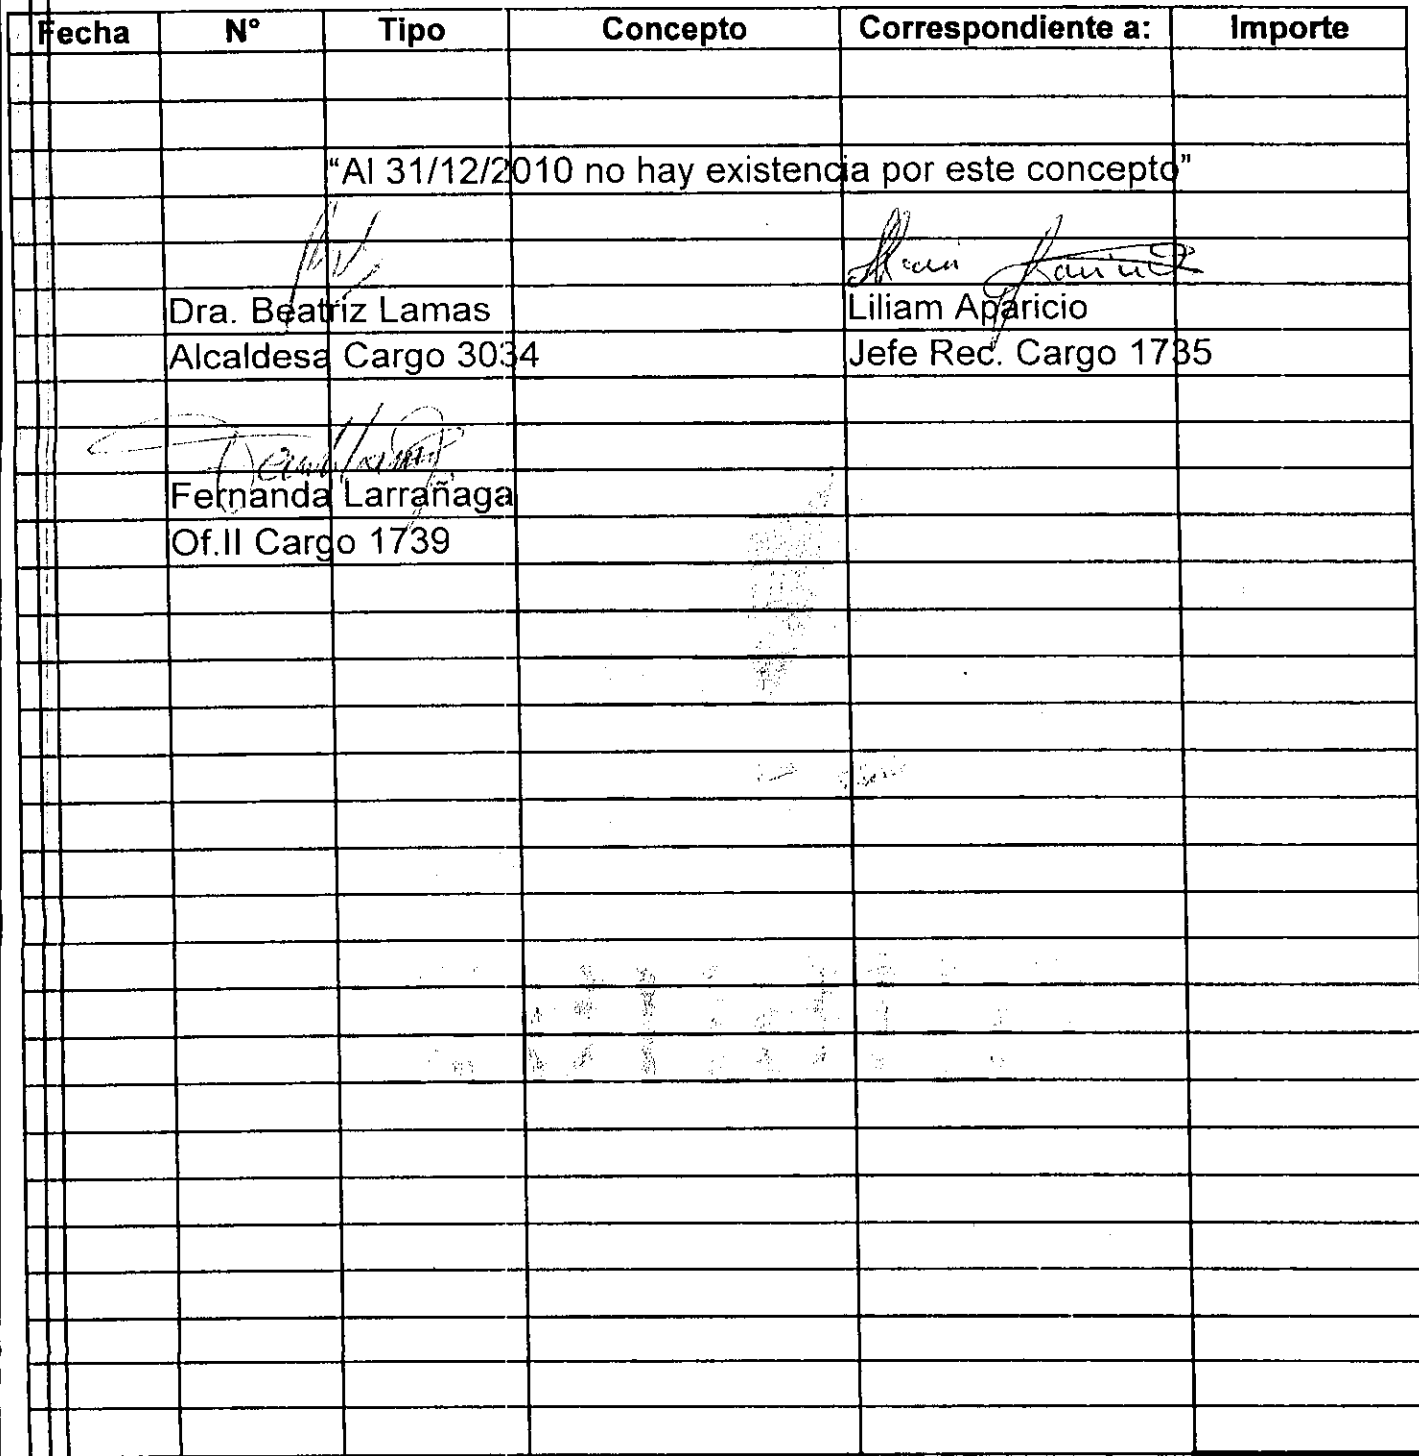 Fecha N° Tipo Concepto Correspondiente a: Importe
“Al 31/12/2010 no hay existencia por este concepto”
Dra. Beatriz Lamas Liliam Aparicio
Alcaldesa Cargo 3034 Jefe Rec. Cargo 1735
Fernanda Larrañaga
Of.II Cargo 1739